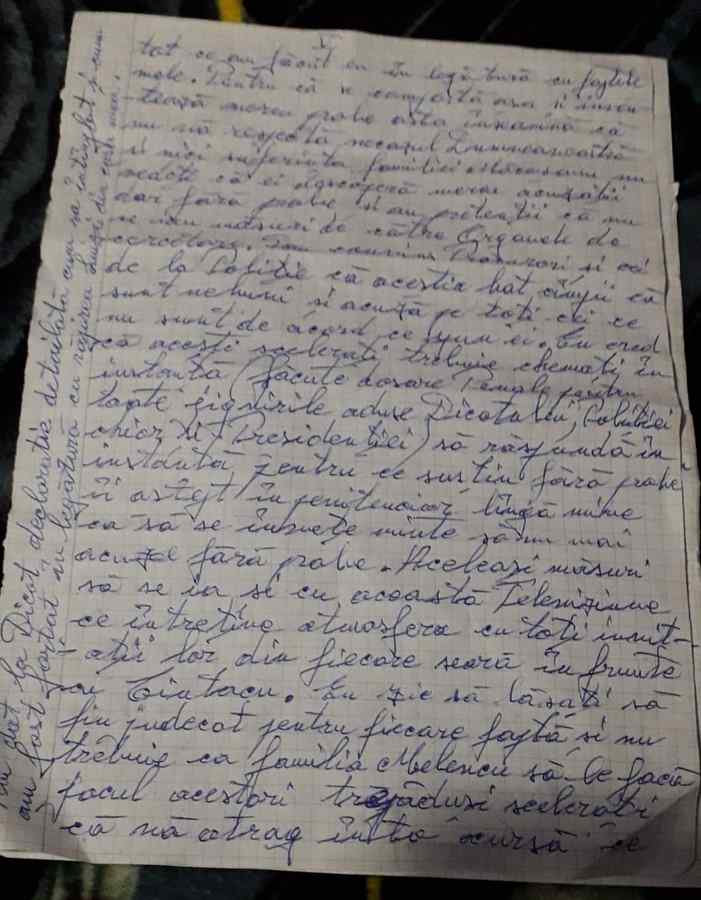 tot ce am făcut eu în legătură cu faptele
mele. Pentru că se comportă așa și inven
tează mereu probe asta înseamnă că
nu mă respectă necazul Dumneavoastră
și nici suferința familiei Măceșanu nu
că ei descoperă mereu acuzații
dar fără probe și au pretenții că nu
se iau măsuri de către Organele de
cercetare. Sun convins Procurori și cei
de la Poliție că aceștia bat cîmpii că
sunt nebuni și acuză pe toți cei ce
nu sunt de acord ce spun ei. Eu cred
că acești scelerați trebuie chemați în
instanță (făcute dosare Penale pentru
toate jignirile aduse Dicotului, Poliției
chior și Presidenției) să răspundă în
instanță pentru ce susțin fără probe
îi aștept în penitenciar lîngă mine
ca să se învețe minte să nu mai
acuze fără probe. Aceleași măsuri
să se ia și cu această Televiziune
ce întreține atmosfera cu toți invit-
ații lor din fiecare seară în frunte
cu Ciutacu. Eu zic să lăsați să
fiu judecat pentru fiecare faptă și nu
trebuie ca familia Melencu să le facă
jocul acestori scelerați
că mă atrag într-o cursă ce
Am dat la Dicot declarație detailată cum s-a întîmplat și cum
am fost forțat cu legătură cu răpirea Luizei din casa mea.